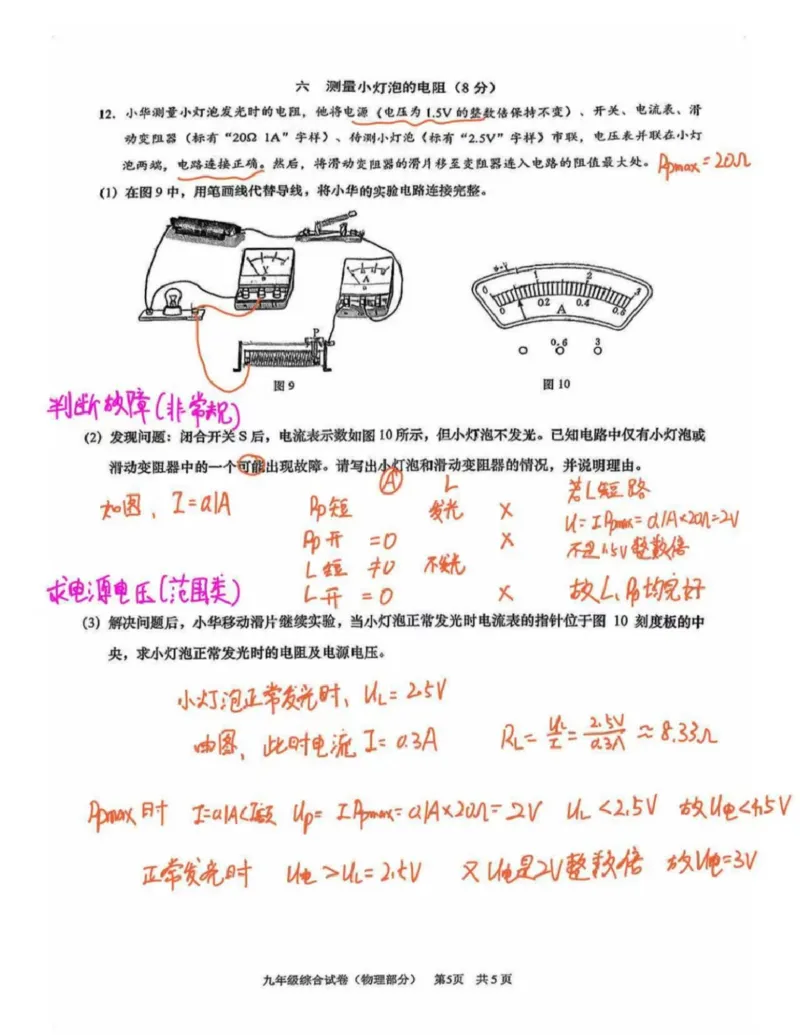 六 测量小灯泡的电阻（8 分）
12. 小华测量小灯泡发光时的电阻，他将电源（电压为 1.5V 的整数倍保持不变）、开关、电流表、滑
动变阻器（标有“20Ω 1A”字样）、待测小灯泡（标有“2.5V”字样）串联，电压表并联在小灯
泡两端，电路连接正确。然后，将滑动变阻器的滑片移至变阻器连入电路的阻值最大处。 Rpmax = 20Ω
(1) 在图 9 中，用笔画线代替导线，将小华的实验电路连接完整。
V
A
P
图 9
0 1 2 3
0 0.2 0.4 0.6
A
0.6 3
图 10
判断故障(非常规)
(2) 发现问题：闭合开关 S 后，电流表示数如图 10 所示，但小灯泡不发光。已知电路中仅有小灯泡或
滑动变阻器中的一个可能出现故障。请写出小灯泡和滑动变阻器的情况，并说明理由。
A L 若L短路
如图、I=0.1A Rp短 发光 × U=IRpmax=0.1A×20Ω=2V
Rp开 =0 × 不是1.5V整数倍
L短 ≠0 不发光
L开 =0 × 故L、Rp均完好
求电源电压(范围类)
(3) 解决问题后，小华移动滑片继续实验，当小灯泡正常发光时电流表的指针位于图 10 刻度板的中
央，求小灯泡正常发光时的电阻及电源电压。
小灯泡正常发光时、UL=2.5V
由图，此时电流 I=0.3A RL=UL/I=2.5V/0.3A≈8.33Ω
Rpmax时 I=0.1A<I额 Up=IRpmax=0.1A×20Ω=2V UL<2.5V 故U电<4.5V
正常发光时 U电>UL=2.5V 又U电是2V整数倍 故U电=3V
九年级综合试卷（物理部分） 第5页 共 5 页